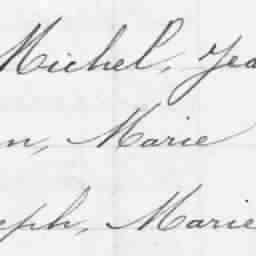 Michel, Jea
n, Marie
eph, Marie